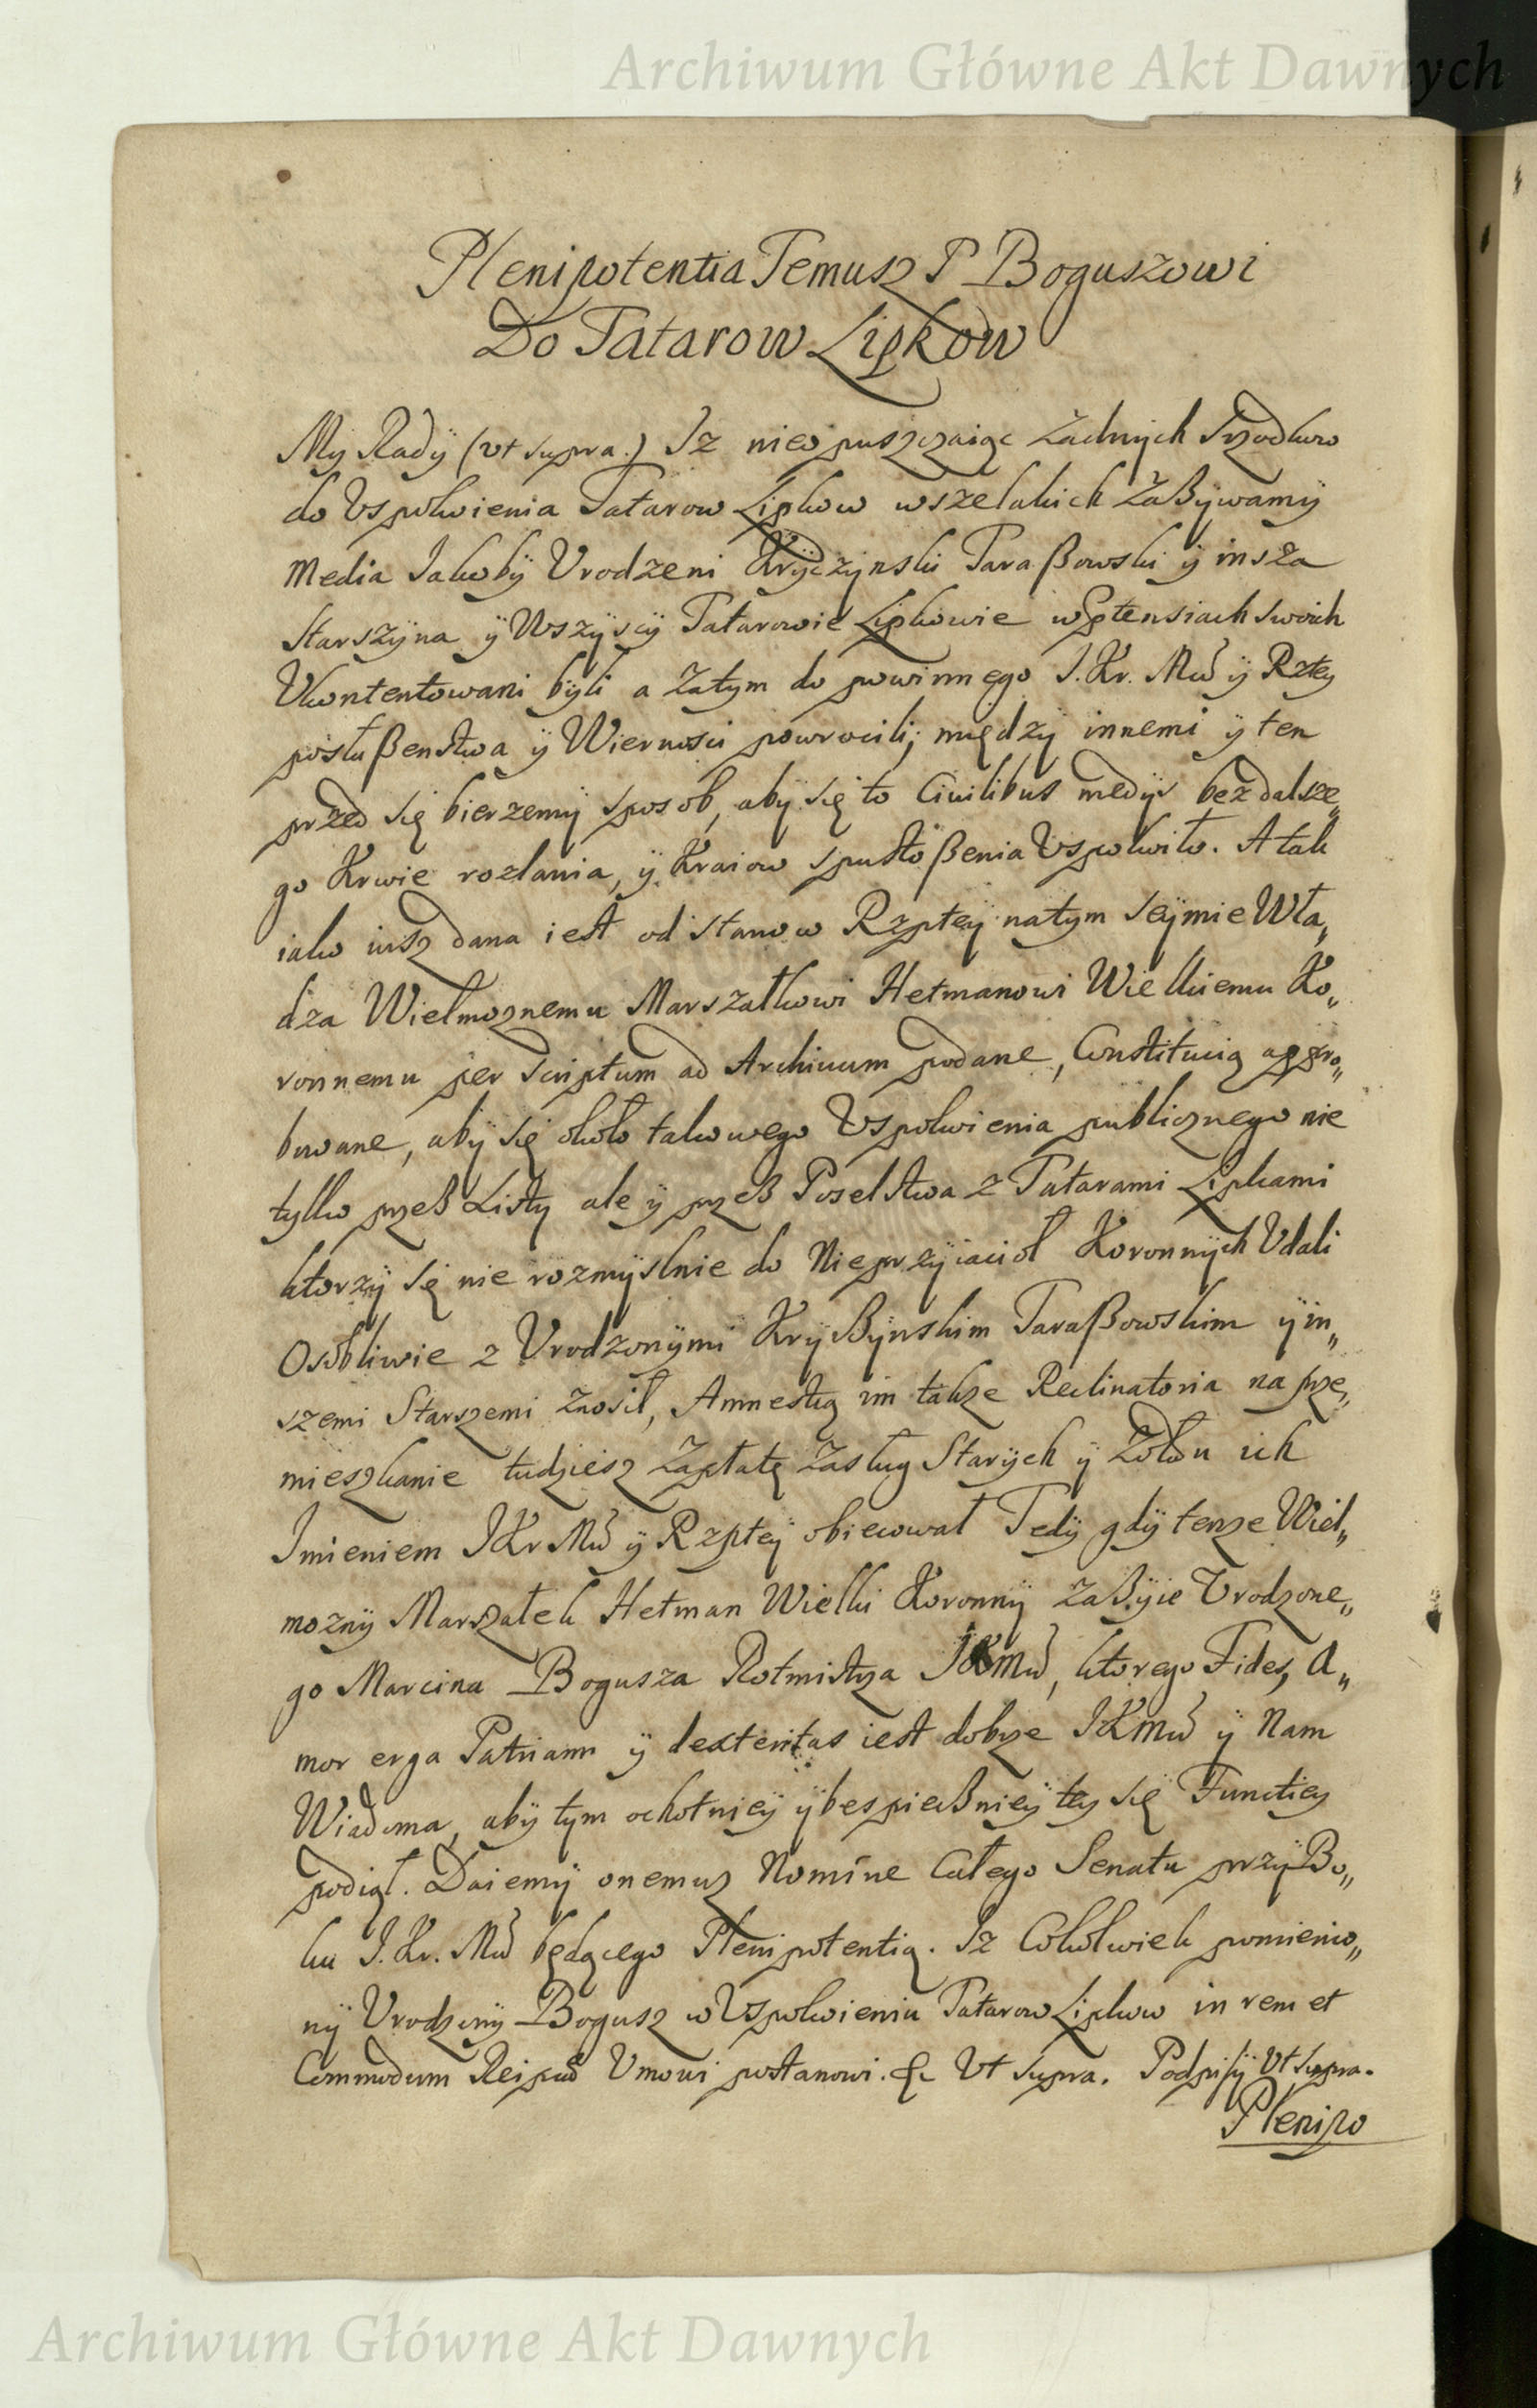 Archiwum Główne Akt Dawnych
Plenipotentia Temusz P Boguszowi
Do Tatarow Lipkow
My Rady (vt supra.) Iz nieopuszczaiąc żadnych srzodkow
do Vspokoienia Tatarow Lipkow wszelakich zaßywamy
media Jakoby Vrodzeni Kryczynski Taraßowski y insza
Starszyna y Wszyscy Tatarowie Lipkowie w Ptensiach swoich
Vkontentowani byli a zatym do powinnego J. Kr. Mći y Rzltey
posłußenstwa y Wiernosci powrocili; między innemi y ten
przed się bierzemy sposob, aby się to Ciuilibus medys bez dalsze„
go Krwie rozlania, y Kraiow spustoßenia Vspokoiło. A tak
iako iusz dana iest od stanow Rzpltey na tym seymie Wła„
dza Wielmoznemu Marszałkowi Hetmanowi Wielkiemu Ko„
ronnemu per scriptum ad Archiuum podane, Constitucią appro„
bowane, aby się około takowego Vspokoienia publicznego nie
tylko przeß Listy ale y przeß Poselstwa z Tatarami Lipkami
ktorzy się nie rozmyslnie do Nieprzyiacioł Koronnych Vdali
Osobliwie z Vrodzonymi Kryßynskim Taraßowskim y in„
szemi Starszemi znosił, Amnestią im takze Reclinatoria na prze„
mieszkanie tudziesz Zapłatę zasług Starych y Zołdu ich
Imieniem JKr Mći y Rzpltey obiecował Tedy gdy tenze Wiel„
mozny Marszałek Hetman Wielki Koronny zaßyie Vrodzone„
go Marcina Bogusza Rotmistrza JKMći, ktorego Fides, A„
mor erga Patriam y dexteritas iest dobrze JKMći y Nam
Wiadoma, aby tym ochotniey y bespieczniey tey się Functiey
podiął. Daiemy onemusz Nomine Całego Senatu przy Bo„
ku J. Kr. Mći będącego Plenipotentią. Iz Cokolwiek pomienio„
ny Vrodzony Bogusz w Vspokoieniu Tatarow Lipkow in rem et
Commodum Reipub Vmowi postanowi. &c Vt supra. Podpisy Vt supra.
Plenipo
Archiwum Główne Akt Dawnych